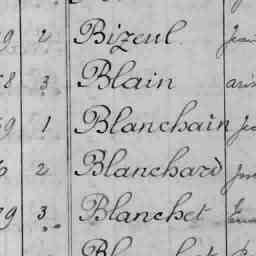 9 2 Bizeul Jean
8 3 Blain
9 1 Blanchain
2 Blanchard
9 3 Blanchet